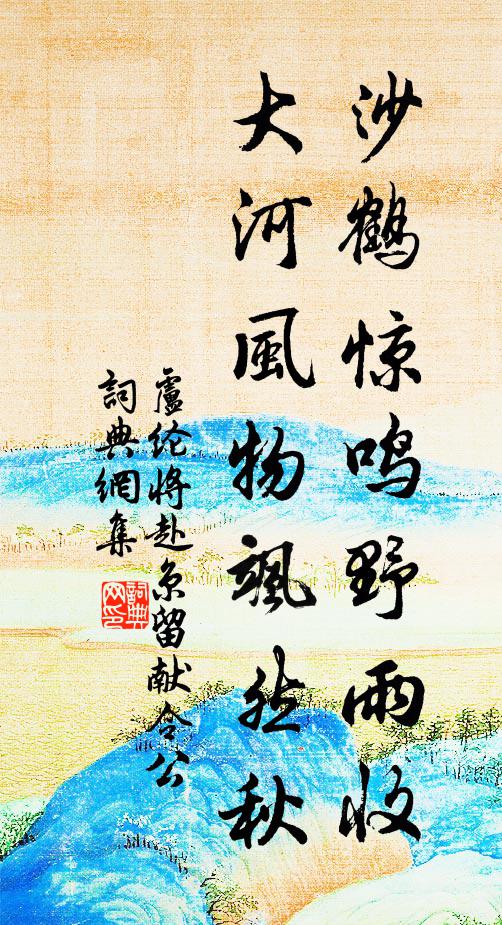 沙鹤惊鸣野雨收
大河風物颯然秋
盧纶将赴京留献令公
詞典網集
詞典